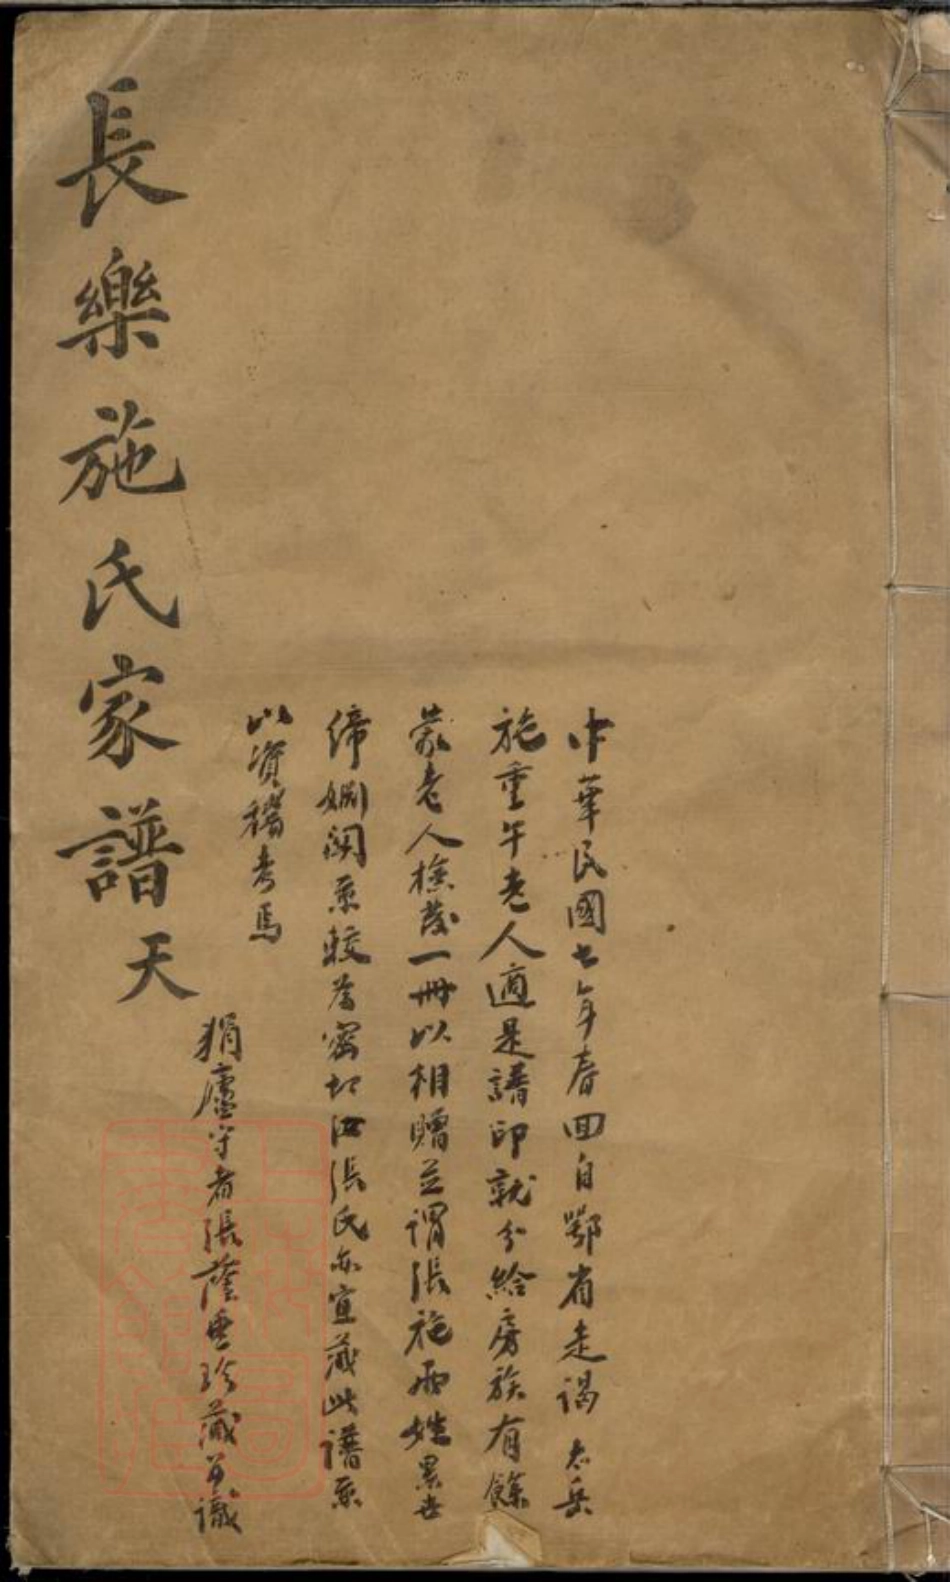 長樂施氏家譜 天
中華民國七年春回自鄂省走謁 太岳
施重午老人適是譜印就分給房族有餘
蒙老人檢發一冊以相贈並謂張施兩姓累世
締姻関系較為密切江張氏亦宜藏此譜系
以資稽考焉
狷廬守者張蔭 珍藏並識